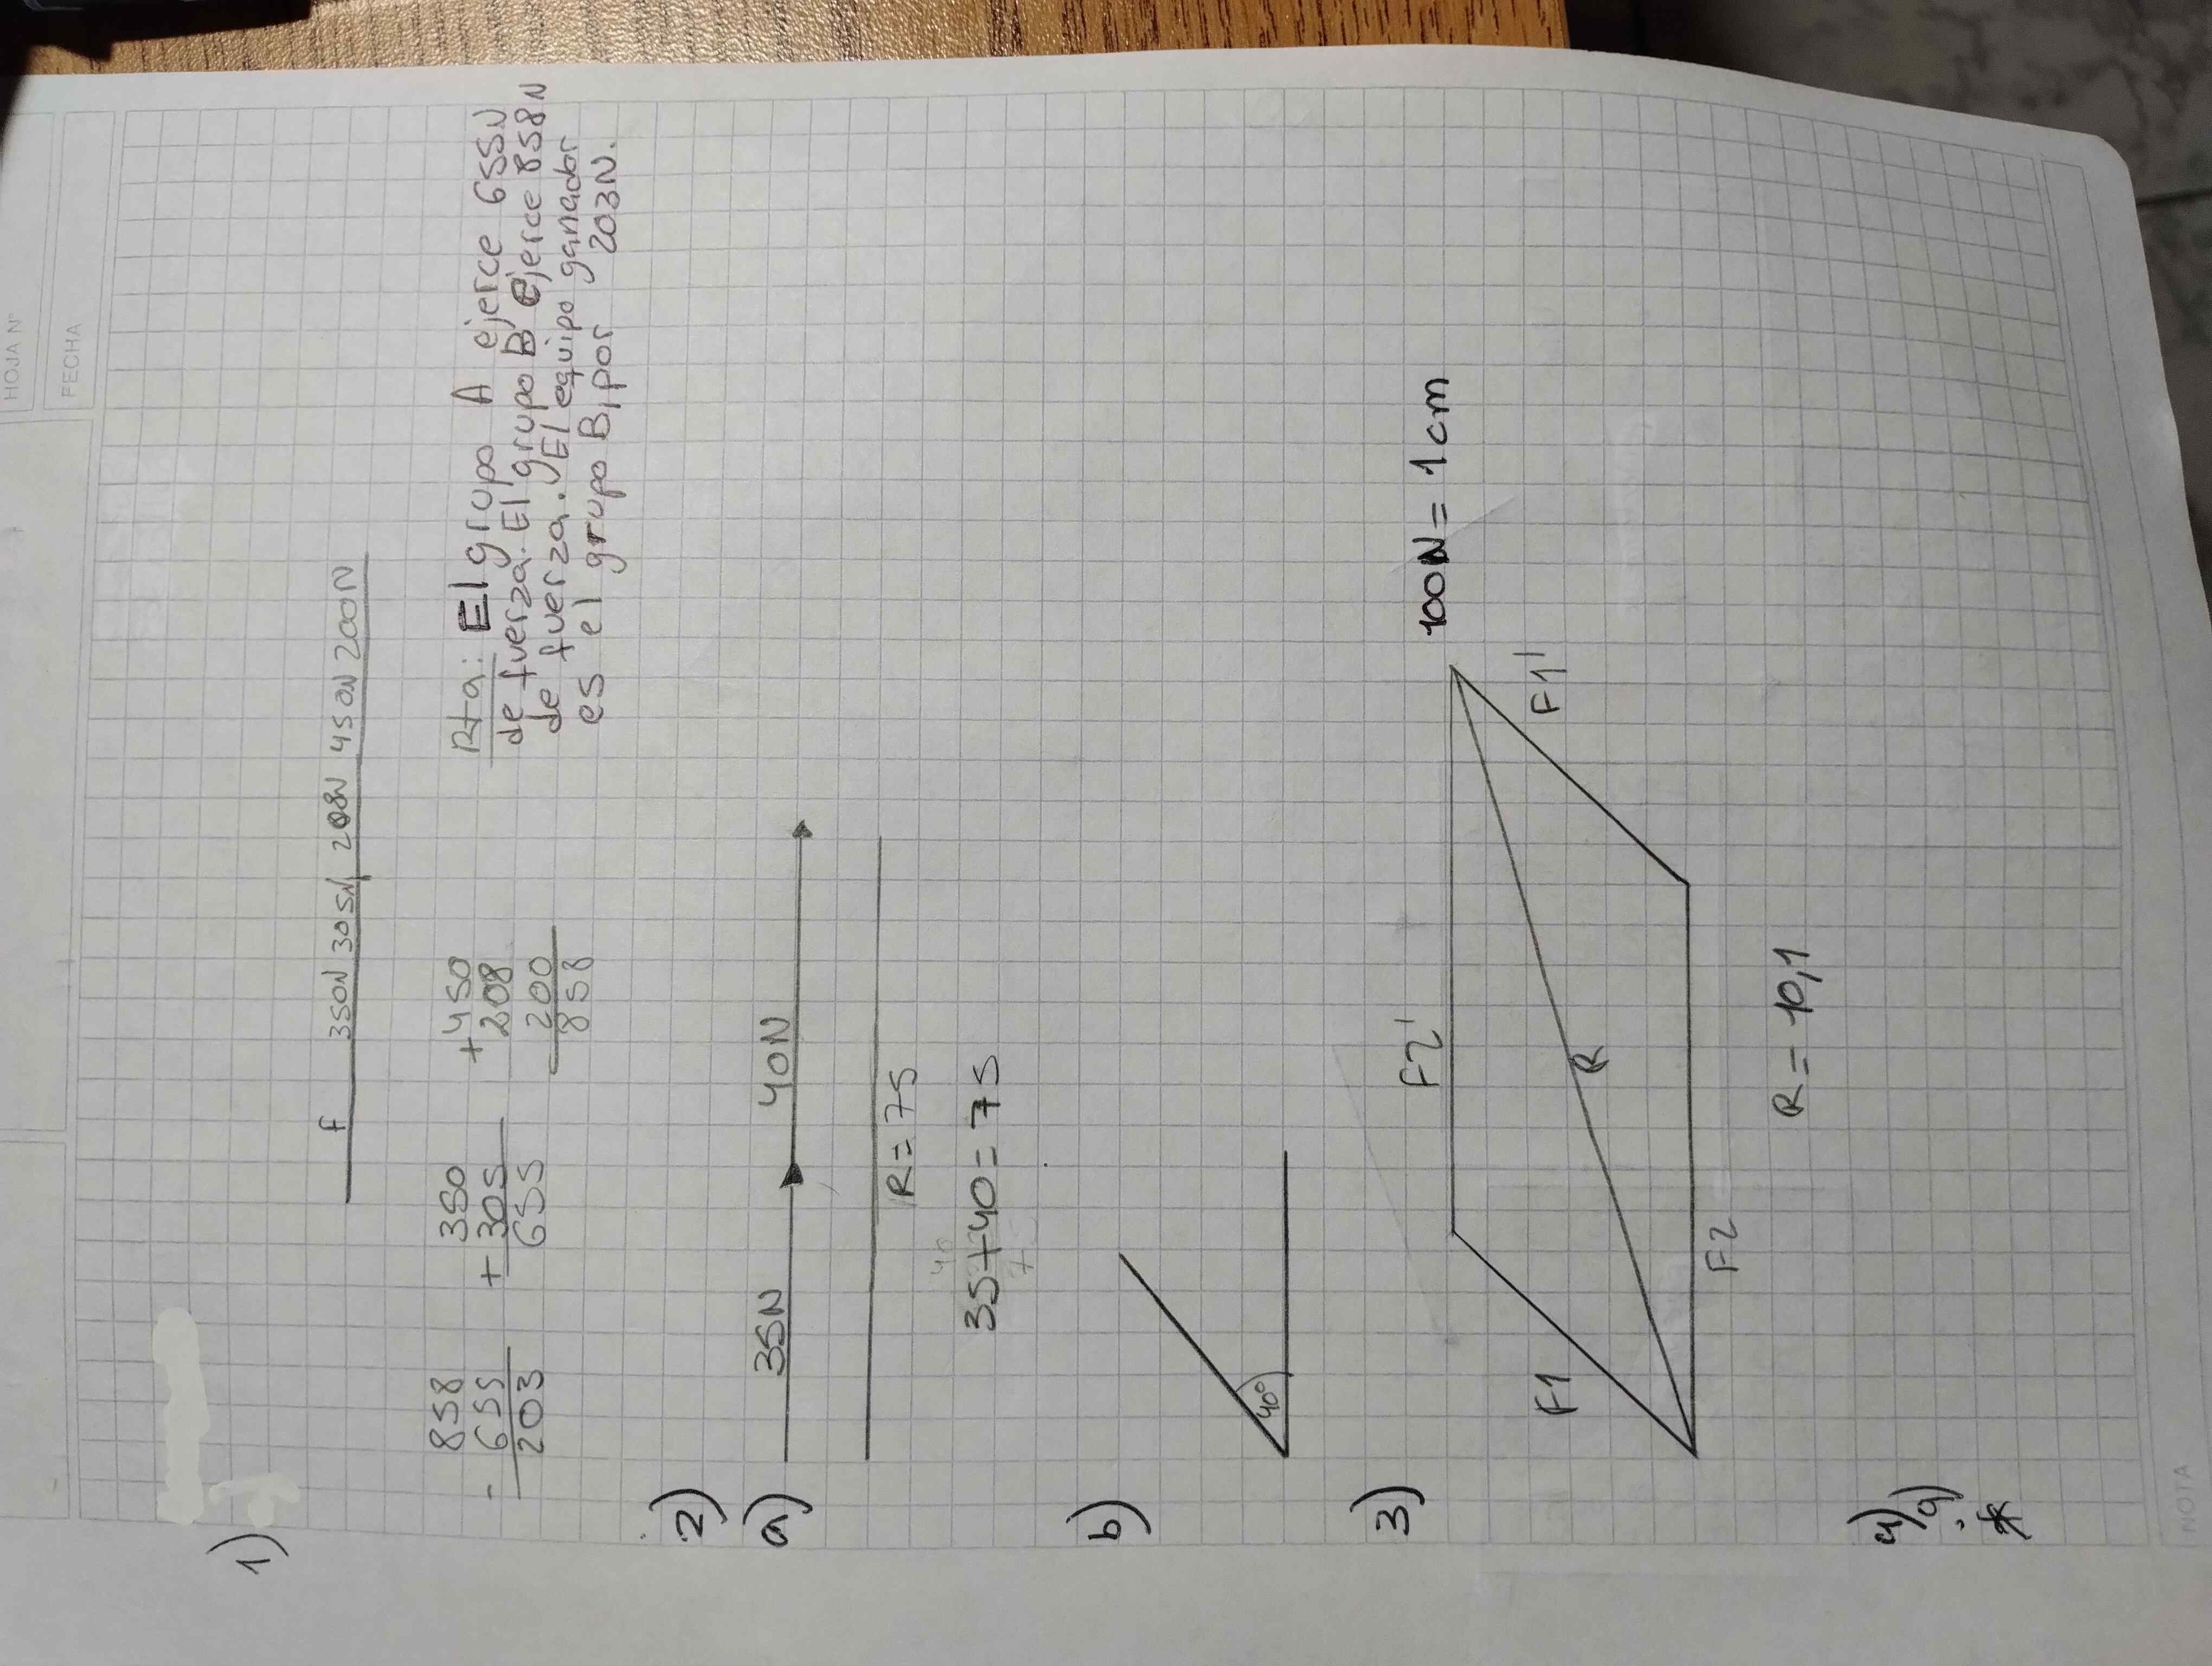 HOJA N°
FECHA
1)
f 350N 305N 208N 450N 200N
858
- 655
203
350
+ 305
655
+450
208
200
858
Rta: El grupo A ejerce 655N
de fuerza. El grupo B ejerce 858N
de fuerza. El equipo ganador
es el grupo B, por 203N.
2)
a) 35N 40N
R=75
35+40=75
b)
40°
3)
100N=1cm
F2'
F1
R
F1'
F2
R=10,1
4)
a)
*
NOTA